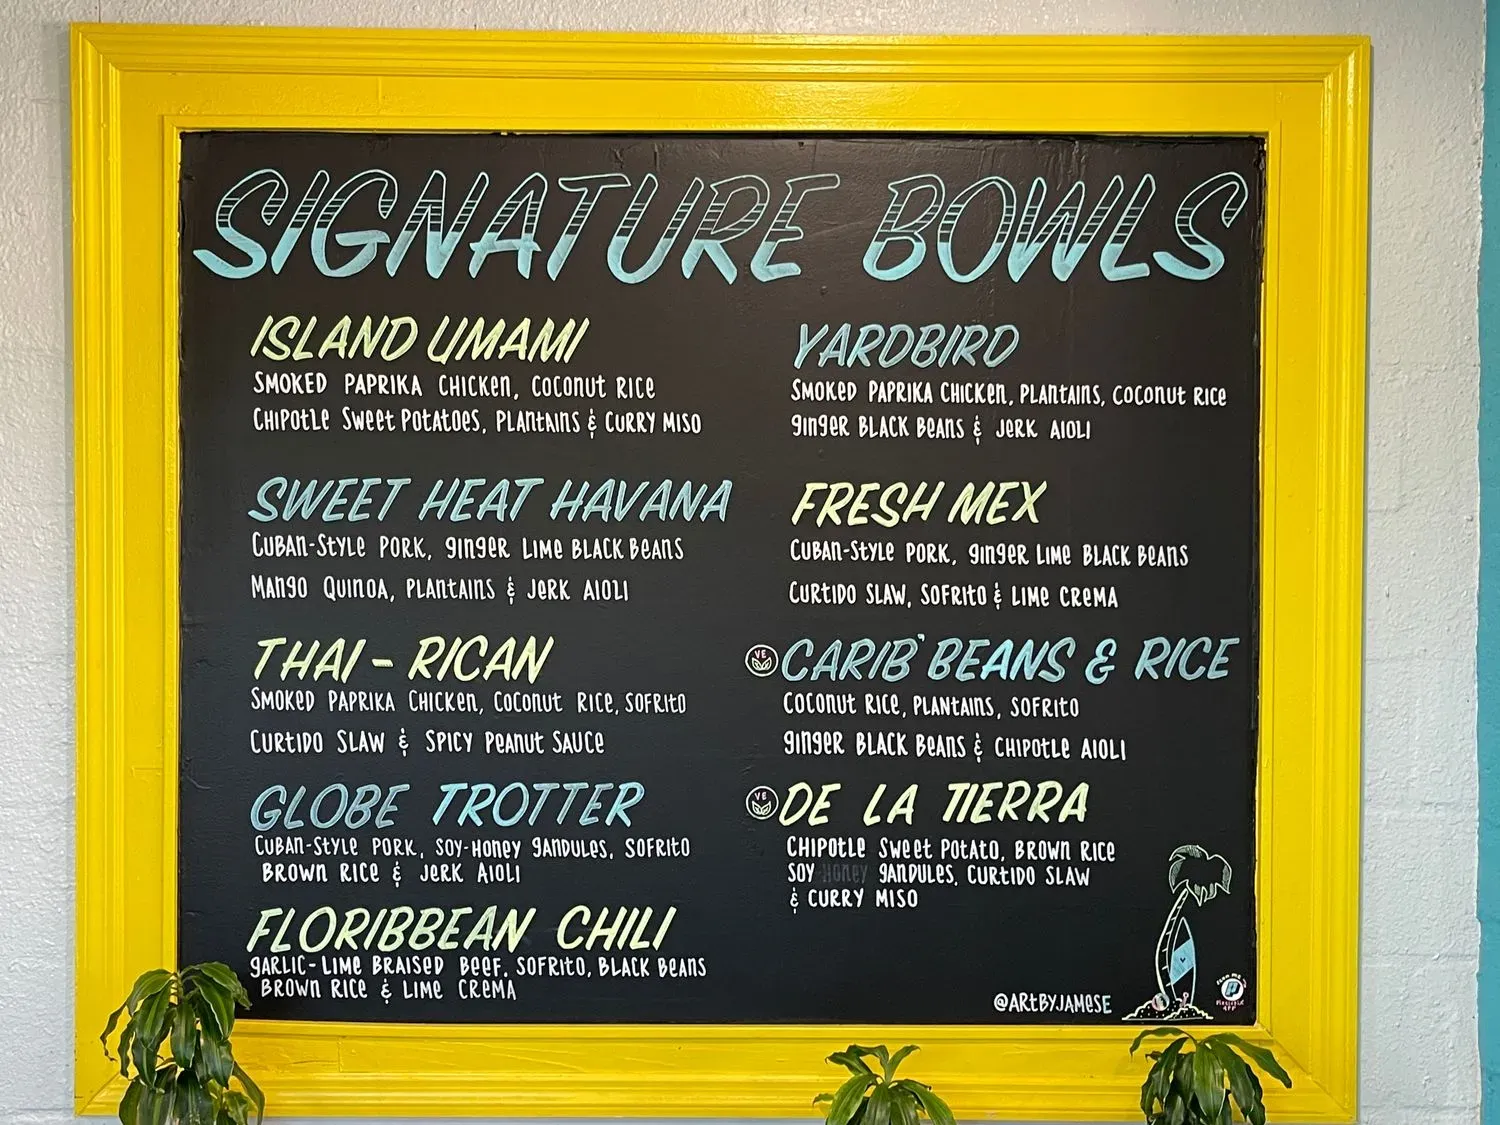 SIGNATURE BOWLS
ISLAND UMAMI
SMOKED PAPRIKA CHICKEN, COCONUT RICE
CHIPOTLE SWEET POTATOES, PLANTAINS & CURRY MISO
SWEET HEAT HAVANA
CUBAN-STYLE PORK, GINGER LIME BLACK BEANS
MANGO QUINOA, PLANTAINS & JERK AIOLI
THAI-RICAN
SMOKED PAPRIKA CHICKEN, COCONUT RICE, SOFRITO
CURTIDO SLAW & SPICY PEANUT SAUCE
GLOBE TROTTER
CUBAN-STYLE PORK, SOY-HONEY GANDULES, SOFRITO
BROWN RICE & JERK AIOLI
FLORIBBEAN CHILI
GARLIC-LIME BRAISED BEEF, SOFRITO, BLACK BEANS
BROWN RICE & LIME CREMA
YARDBIRD
SMOKED PAPRIKA CHICKEN, PLANTAINS, COCONUT RICE
GINGER BLACK BEANS & JERK AIOLI
FRESH MEX
CUBAN-STYLE PORK, GINGER LIME BLACK BEANS
CURTIDO SLAW, SOFRITO & LIME CREMA
VE
CARIB'BEANS & RICE
COCONUT RICE, PLANTAINS, SOFRITO
GINGER BLACK BEANS & CHIPOTLE AIOLI
VE
DE LA TIERRA
CHIPOTLE SWEET POTATO, BROWN RICE
SOY HONEY GANDULES, CURTIDO SLAW
& CURRY MISO
@ARTBYJAMESE
SCAN ME
P
APP